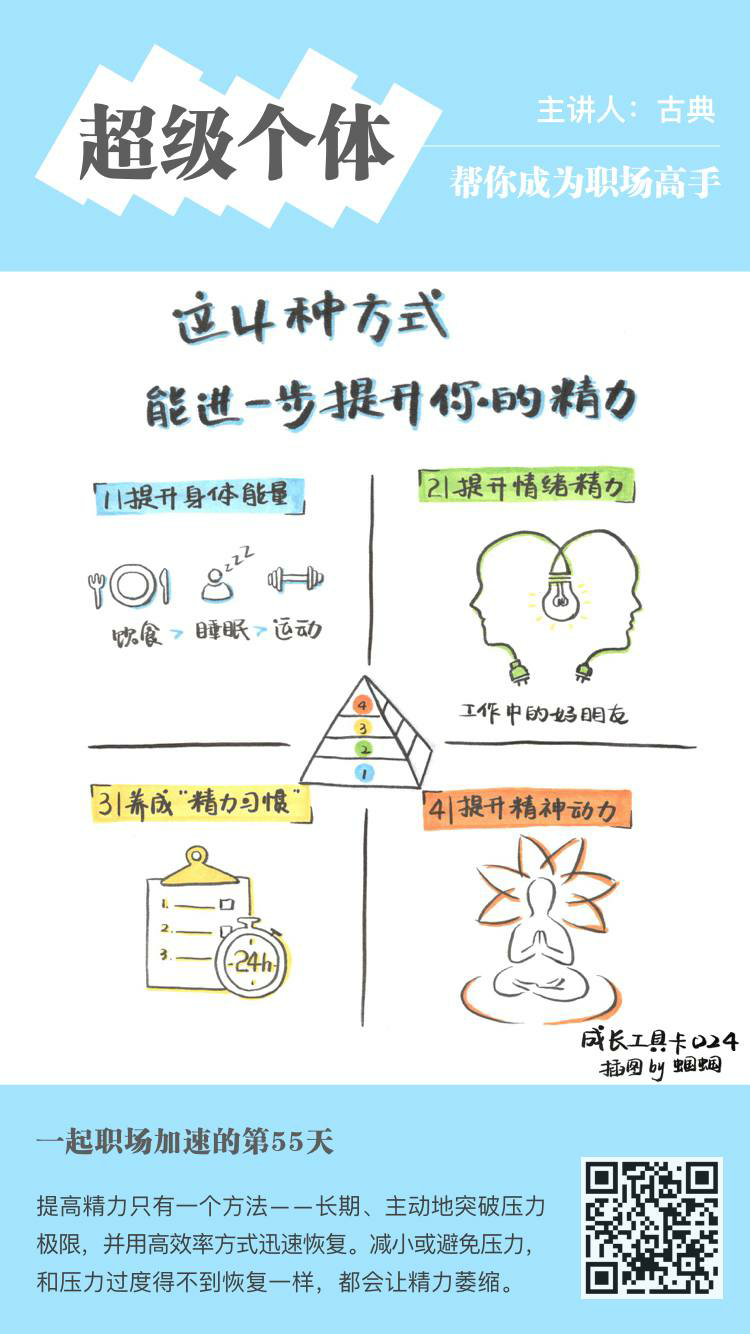 超级个体
主讲人：古典
帮你成为职场高手
这4种方式
能进一步提升你的精力
1|提升身体能量
zzz
饮食 > 睡眠 > 运动
2|提升情绪精力
工作中的好朋友
4
3
2
1
3|养成“精力习惯”
1.
2.
3.
24h
4|提升精神动力
成长工具卡024
插图by 蝈蝈
一起职场加速的第55天
提高精力只有一个方法——长期、主动地突破压力
极限，并用高效率方式迅速恢复。减小或避免压力，
和压力过度得不到恢复一样，都会让精力萎缩。